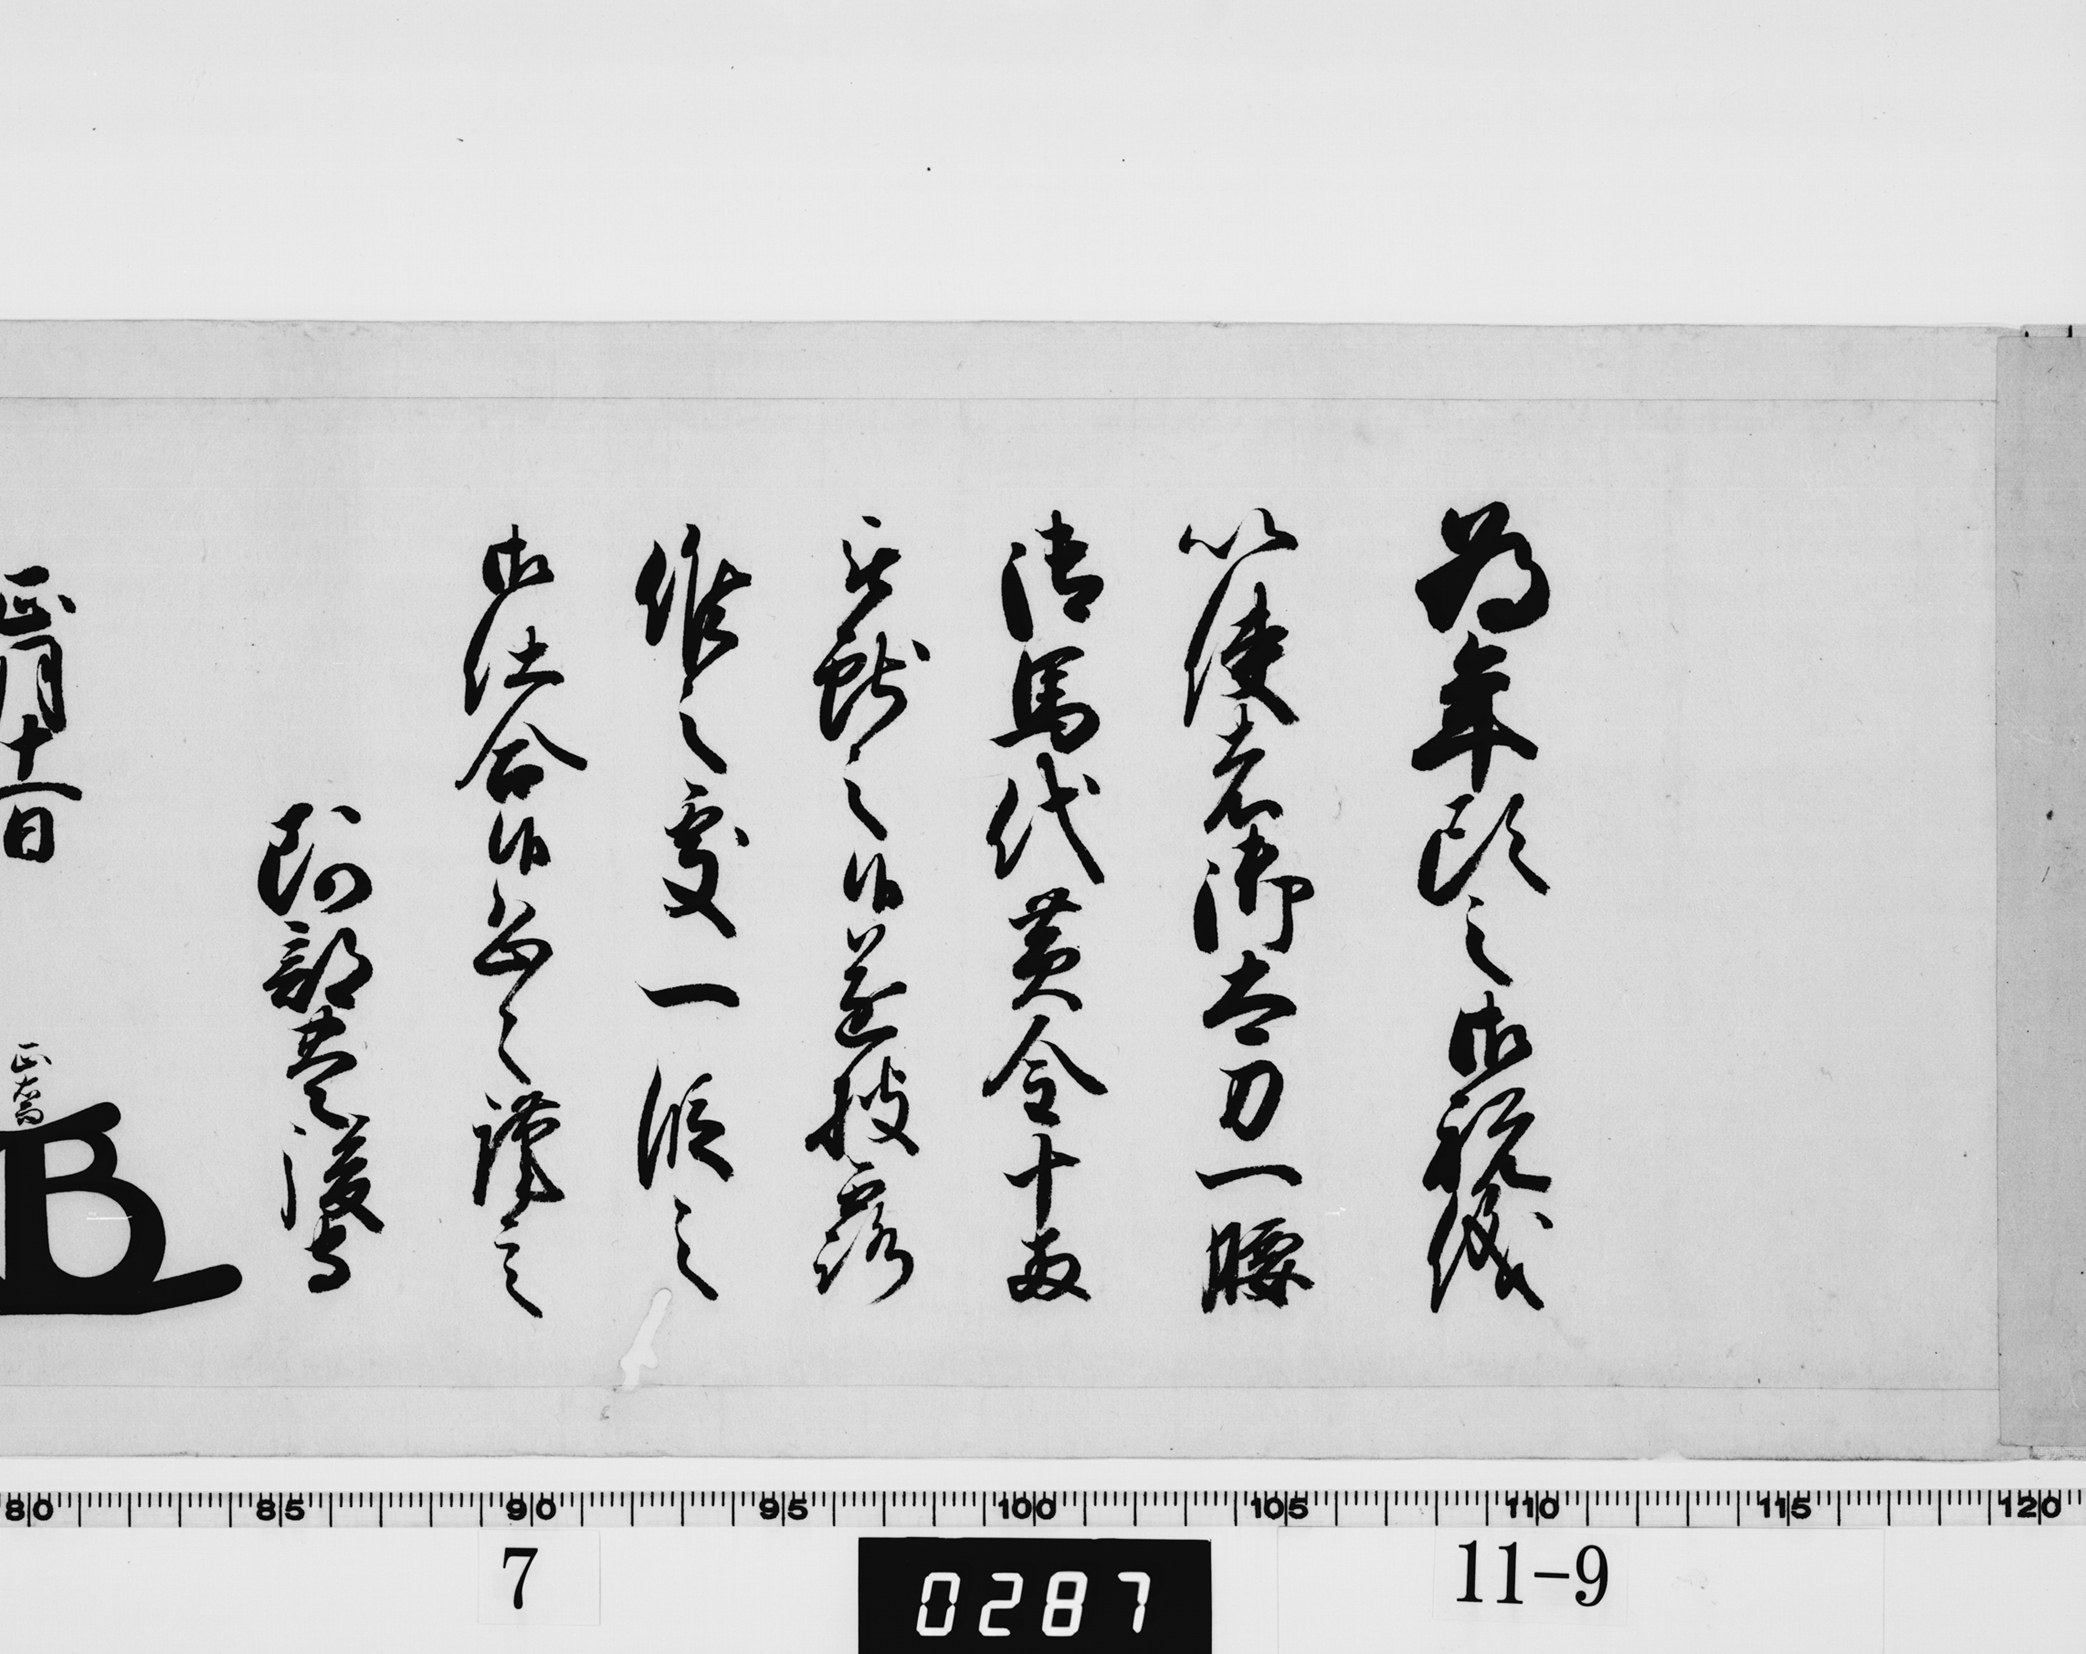 為年頭之御祝儀
以使者御太刀一腰
御馬代黄金十両
被献之候遂披露
候之処一段之
御仕合候恐々謹言
阿部豊後守
正月十一日
正喬
80 85 90 95 100 105 110 115 120
7
0287
11-9